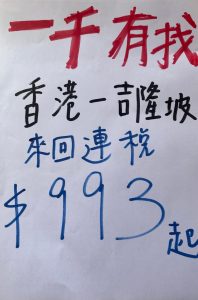 一千有找
香港－吉隆坡
來回連稅
$993起